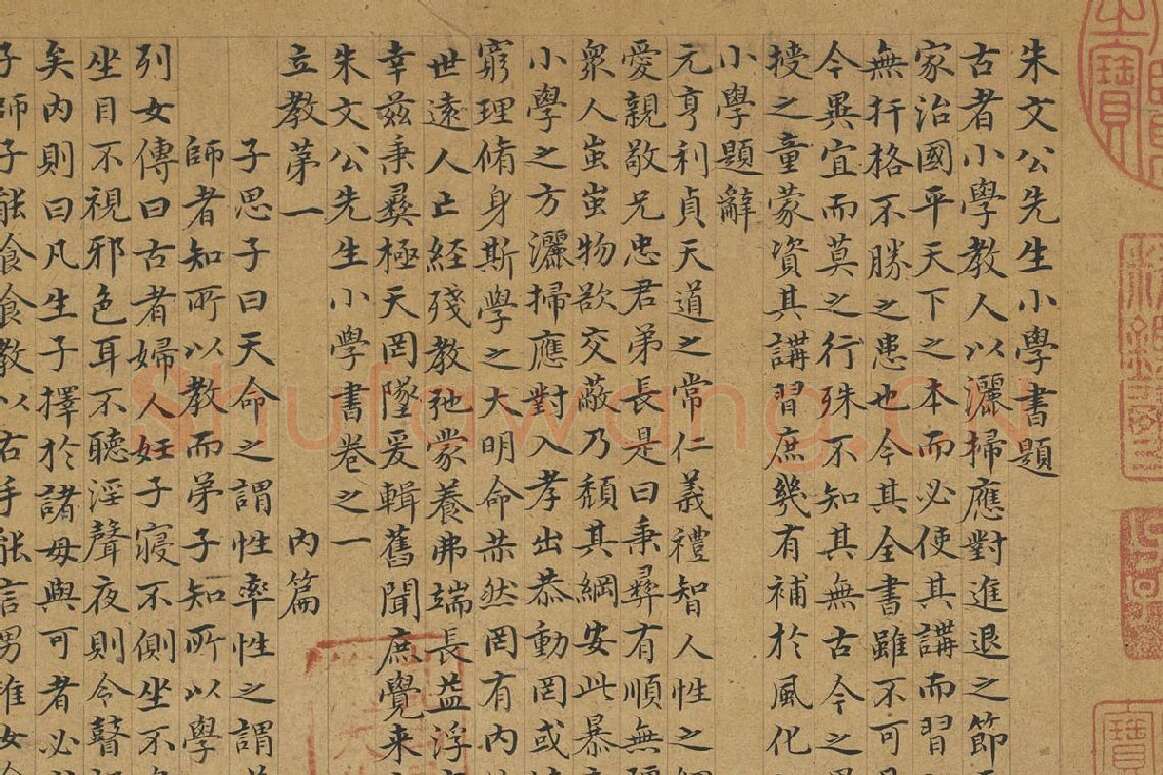 朱文公先生小學書題
古者小學教人以灑掃應對進退之節
家治國平天下之本而必使其講而習
無扞格不勝之患也今其全書雖不可
今異宜而莫之行殊不知其無古今之
授之童蒙資其講習庶幾有補於風化
小學題辭
元亨利貞天道之常仁義禮智人性之綱
愛親敬兄忠君弟長是曰秉彝有順無
眾人蚩蚩物欲交蔽乃頹其綱安此暴
小學之方灑掃應對入孝出恭動罔或
窮理脩身斯學之大明命赫然罔有內
世遠人亡經殘教弛蒙養弗端長益浮
幸茲秉彝極天罔墜爰輯舊聞庶覺來
朱文公先生小學書卷之一
立教第一 內篇
子思子曰天命之謂性率性之謂
師者知所以教而弟子知所以學
列女傳曰古者婦人妊子寢不側坐不
坐目不視邪色耳不聽淫聲夜則令瞽
矣內則曰凡生子擇於諸母與可者必
子師子能食食教以右手能言男唯女
寶
寶
Shufawang.CN